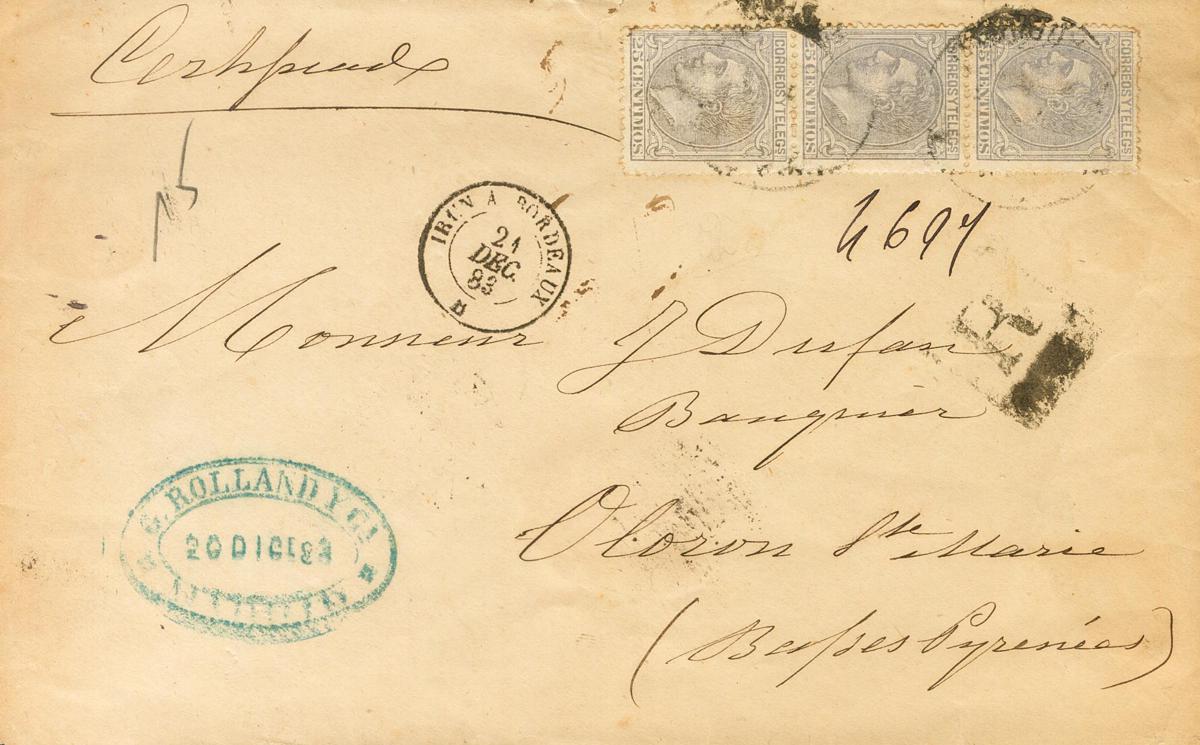 Certificado
CORREOS Y TELEGS
25 CENTIMOS
CORREOS Y TELEGS
25 CENTIMOS
CORREOS Y TELEGS
25 CENTIMOS
IRUN À BORDEAUX
21
DEC.
83
R
Monsieur J Dufau
Banquier
Oloron Ste Marie
(Basses Pyrenées)
G. ROLLAND Y Cia
20 DIC 83